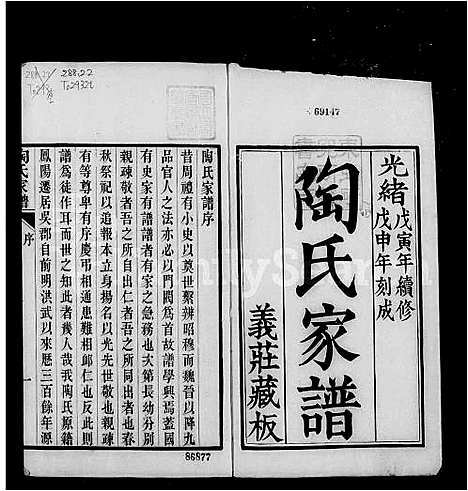 光緒戊寅年續修
戊申年刻成
陶氏家譜
義莊藏板
69147
陶氏家譜序
昔周禮有小史以奠世繫辨昭穆而魏晉以降九
品官人之法亦必以門閥為首故譜學興焉蓋國
有史家有譜譜者有家之急務也夫第長幼分別
親疎敬者吾之所自出仁者吾之所同出者也春
秋祭祀以追報本立身揚名以光先世敬也親疎
有等尊卑有序慶弔相通患難相卹仁也反此則
譜為徒作耳而世之如此者幾人哉我陶氏原籍
鳳陽遷居吳郡自前明洪武以來歷三百餘年源
陶氏家譜
序
一
86877
288.22
T029321